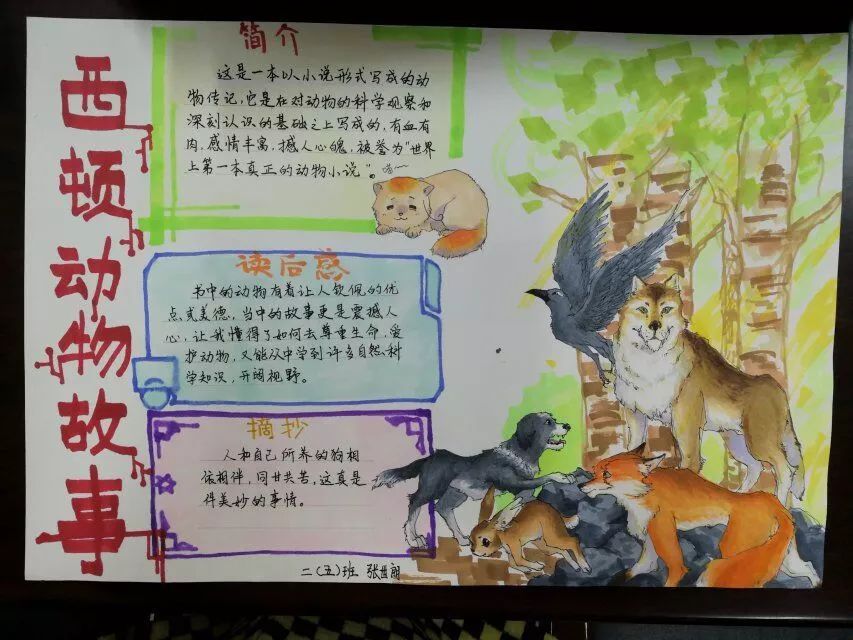 西顿动物故事
简介
这是一本以小说形式写成的动
物传记,它是在对动物的科学观察和
深刻认识的基础之上写成的,有血有
肉,感情丰富,撼人心魄,被誉为"世界
上第一本真正的动物小说"。
读后感
书中的动物有着让人钦佩的优
点或美德,当中的故事更是震撼人
心,让我懂得了如何去尊重生命,爱
护动物,又能从中学到许多自然科
学知识,开阔视野。
摘抄
人和自己所养的狗相
依相伴,同甘共苦,这真是
件美妙的事情。
二(五)班 张世